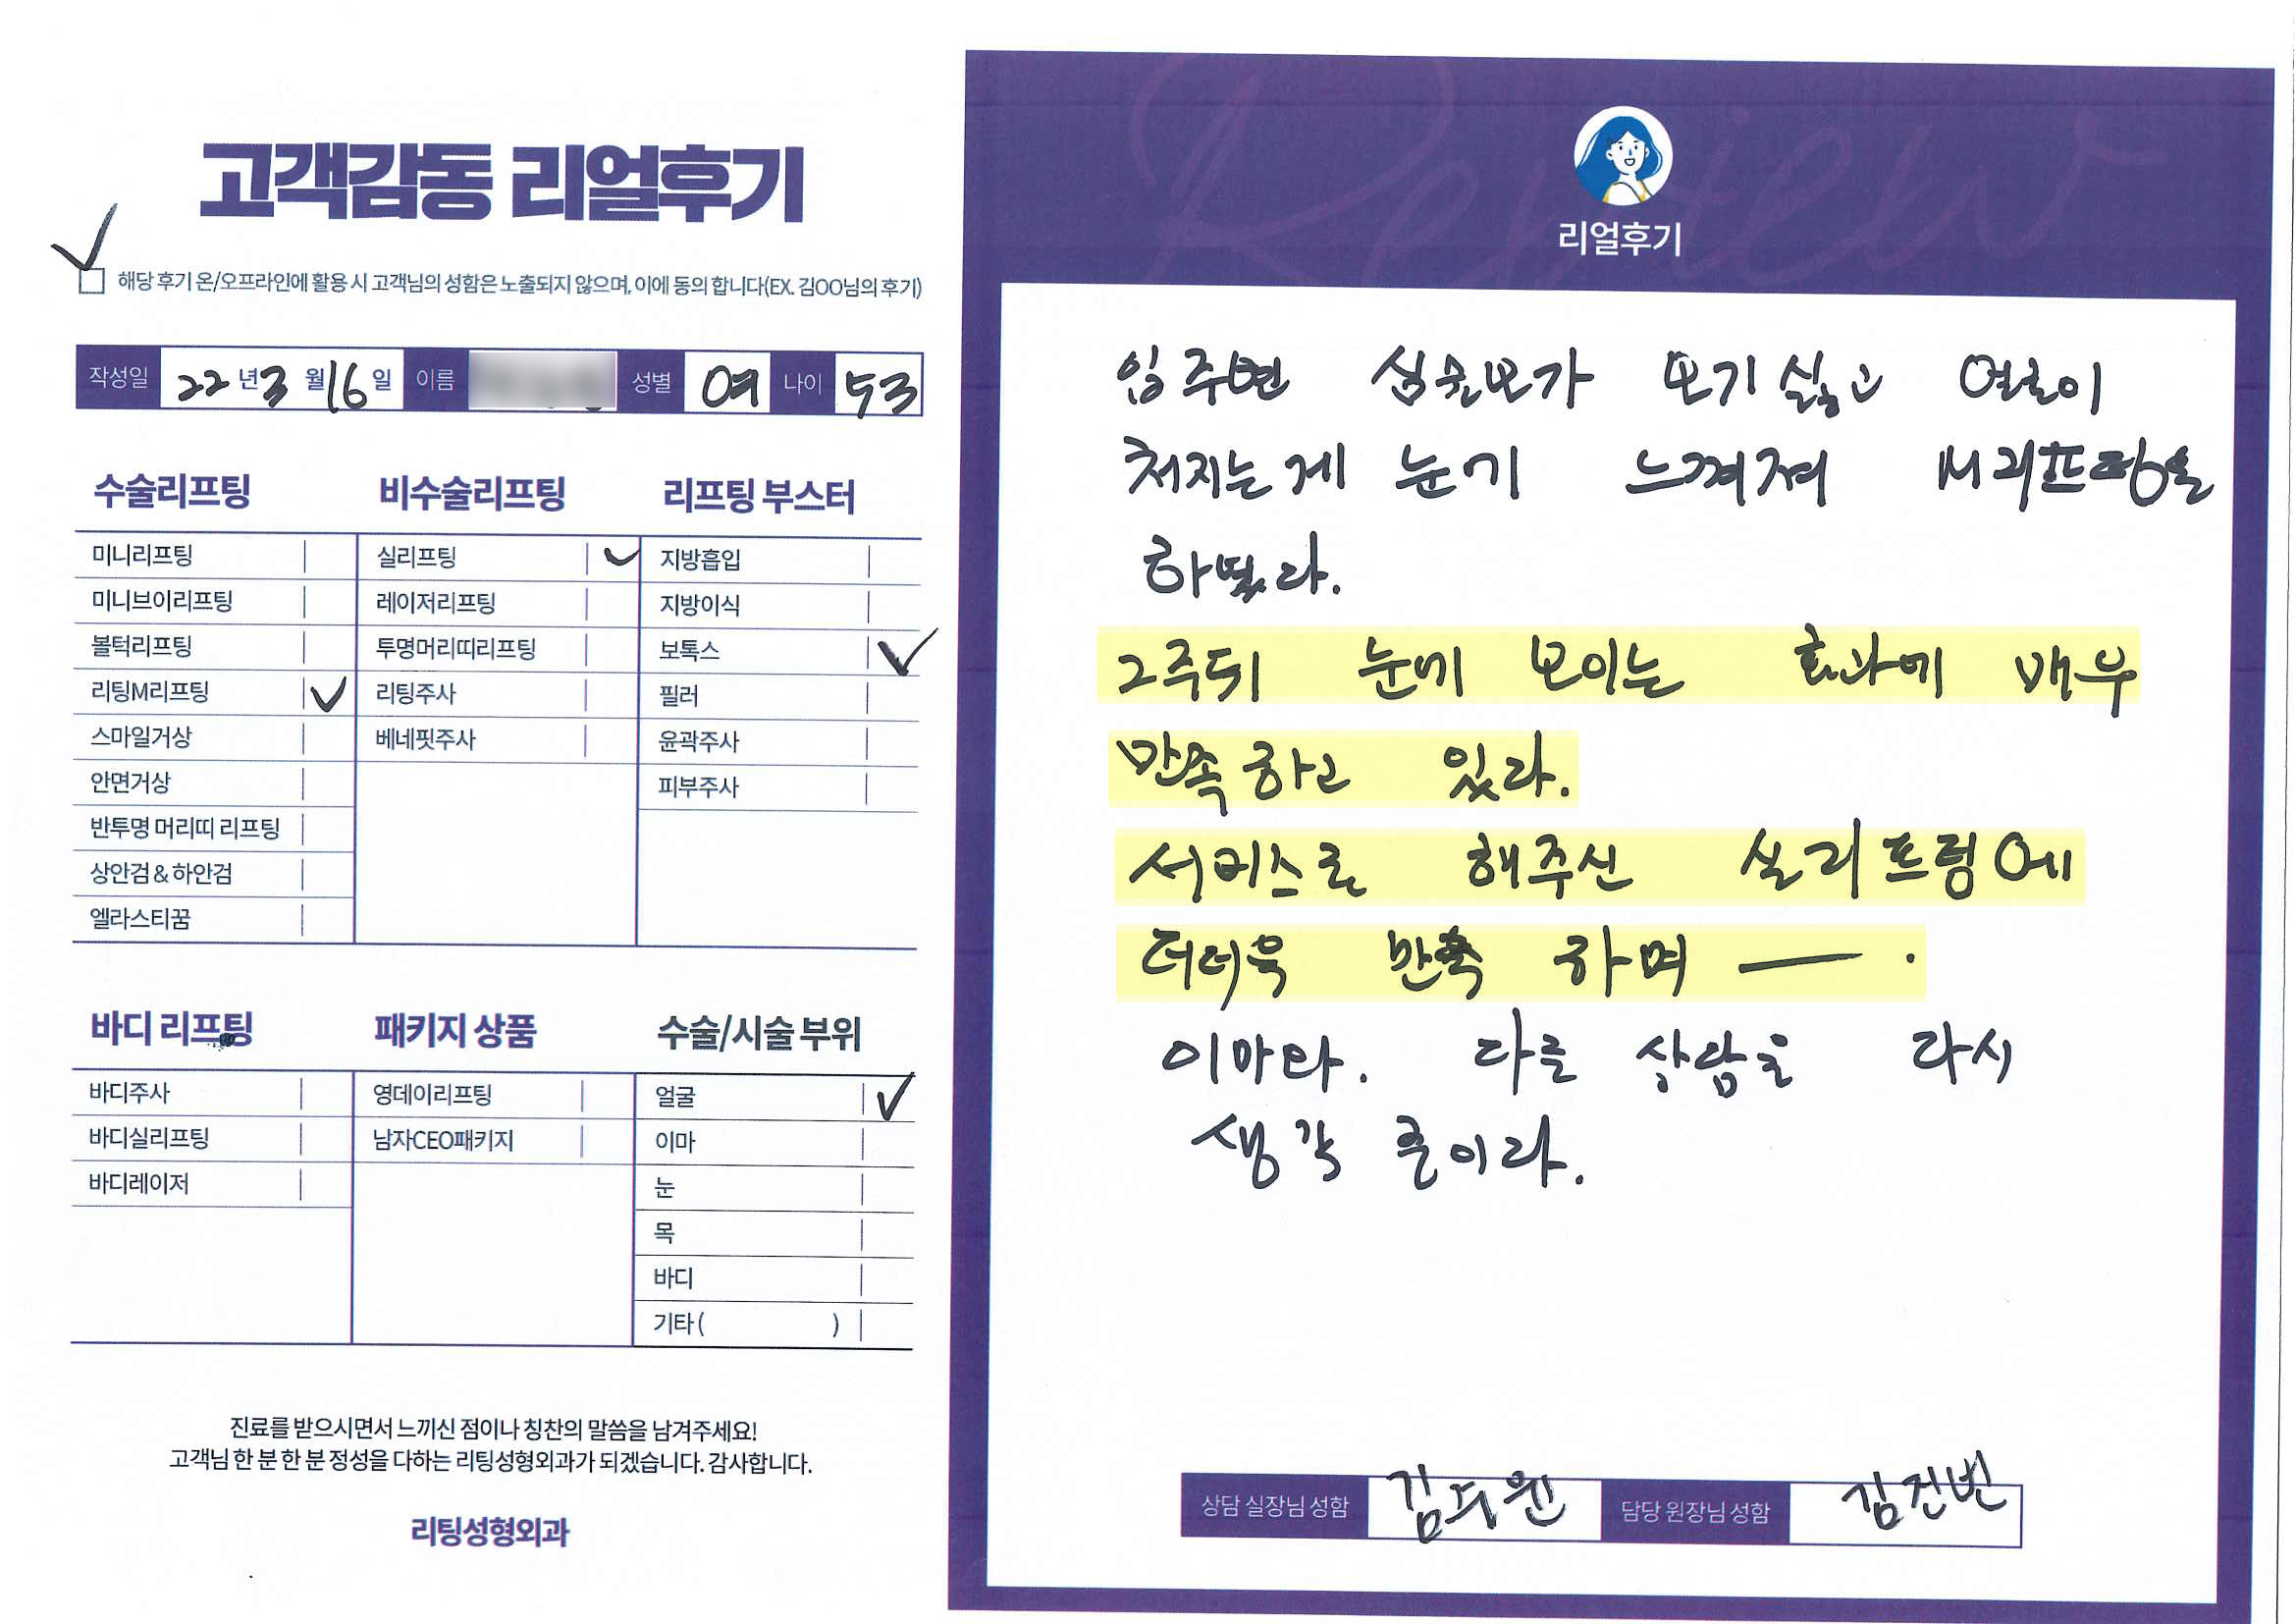 고객감동 리얼후기
해당 후기 온/오프라인에 활용 시 고객님의 성함은 노출되지 않으며, 이에 동의 합니다(EX. 김OO님의 후기)
작성일 22년 3월 16일 이름 성별 여 나이 53
수술리프팅
미니리프팅
미니브이리프팅
볼턱리프팅
리팅M리프팅
스마일거상
안면거상
반투명 머리띠 리프팅
상안검 & 하안검
엘라스티꿈
비수술리프팅
실리프팅
레이저리프팅
투명머리띠리프팅
리팅주사
베네핏주사
리프팅 부스터
지방흡입
지방이식
보톡스
필러
윤곽주사
피부주사
바디 리프팅
바디주사
바디실리프팅
바디레이저
패키지 상품
영데이리프팅
남자CEO패키지
수술/시술 부위
얼굴
이마
눈
목
바디
기타 ( )
진료를 받으시면서 느끼신 점이나 칭찬의 말씀을 남겨주세요!
고객님 한 분 한 분 정성을 다하는 리팅성형외과가 되겠습니다. 감사합니다.
리팅성형외과
Review
리얼후기
입주변 심술보가 보기싫고 얼굴이
처지는게 눈에 느껴져 M리프팅을
하였다.
2주뒤 눈에 보이는 효과에 매우
만족하고 있다.
서비스로 해주신 실리프팅에
더더욱 만족 하며 ㅡ .
이마다. 다른 상담을 다시
생각 중이다.
상담 실장님 성함 김주원 담당 원장님 성함 김진번